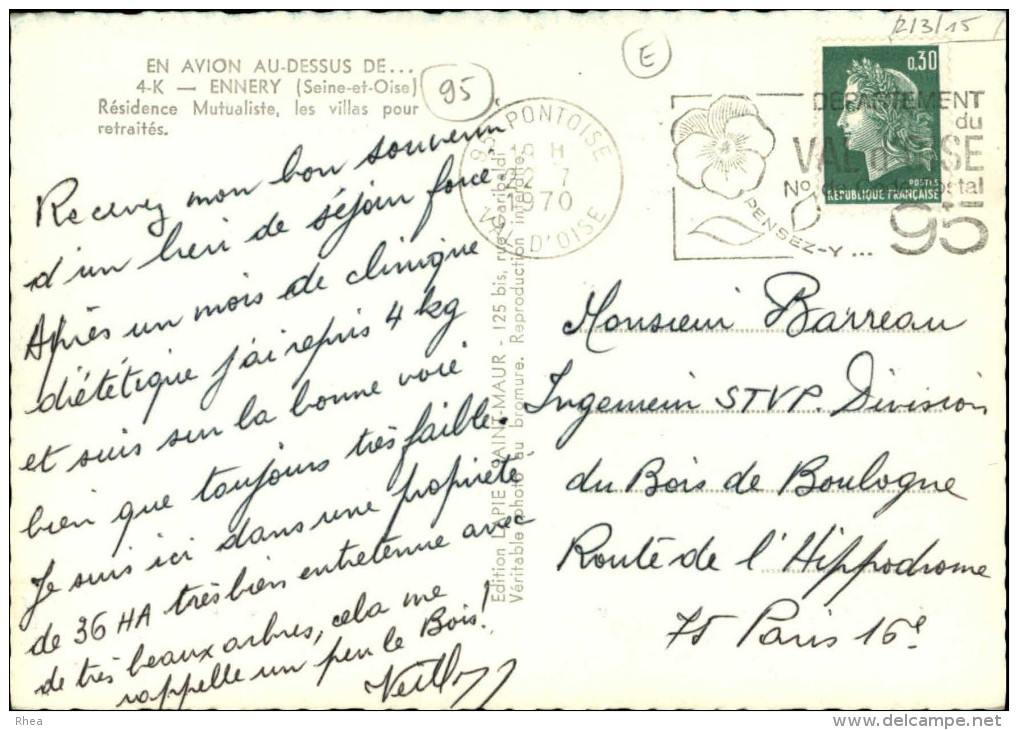 12/3/15
E
95
EN AVION AU-DESSUS DE...
4-K — ENNERY (Seine-et-Oise)
Résidence Mutualiste, les villas pour
retraités.
95 PONTOISE
15 H
22 - 7
1970
VAL D'OISE
PENSEZ-Y...
DÉPARTEMENT
du
VAL D'OISE
No de code postal
95
0,30
POSTES
REPUBLIQUE FRANÇAISE
Recevez mon bon souvenir
d'un lieu de séjour forcé.
Après un mois de clinique
diététique j'ai repris 4 kg
et suis sur la bonne voie
bien que toujours très faible.
Je suis ici dans une propriété
de 36 HA très bien entretenue avec
de très beaux arbres, cela me
rappelle un peu le Bois!
Edition LAPIE SAINT-MAUR - 125 bis, rue Garibaldi
Véritable photo au bromure. Reproduction interdite.
Monsieur Barreau
Ingenieur STVP. Division
du Bois de Boulogne
Route de l'Hippodrome
75 Paris 16e
Rhea
delcampe.net